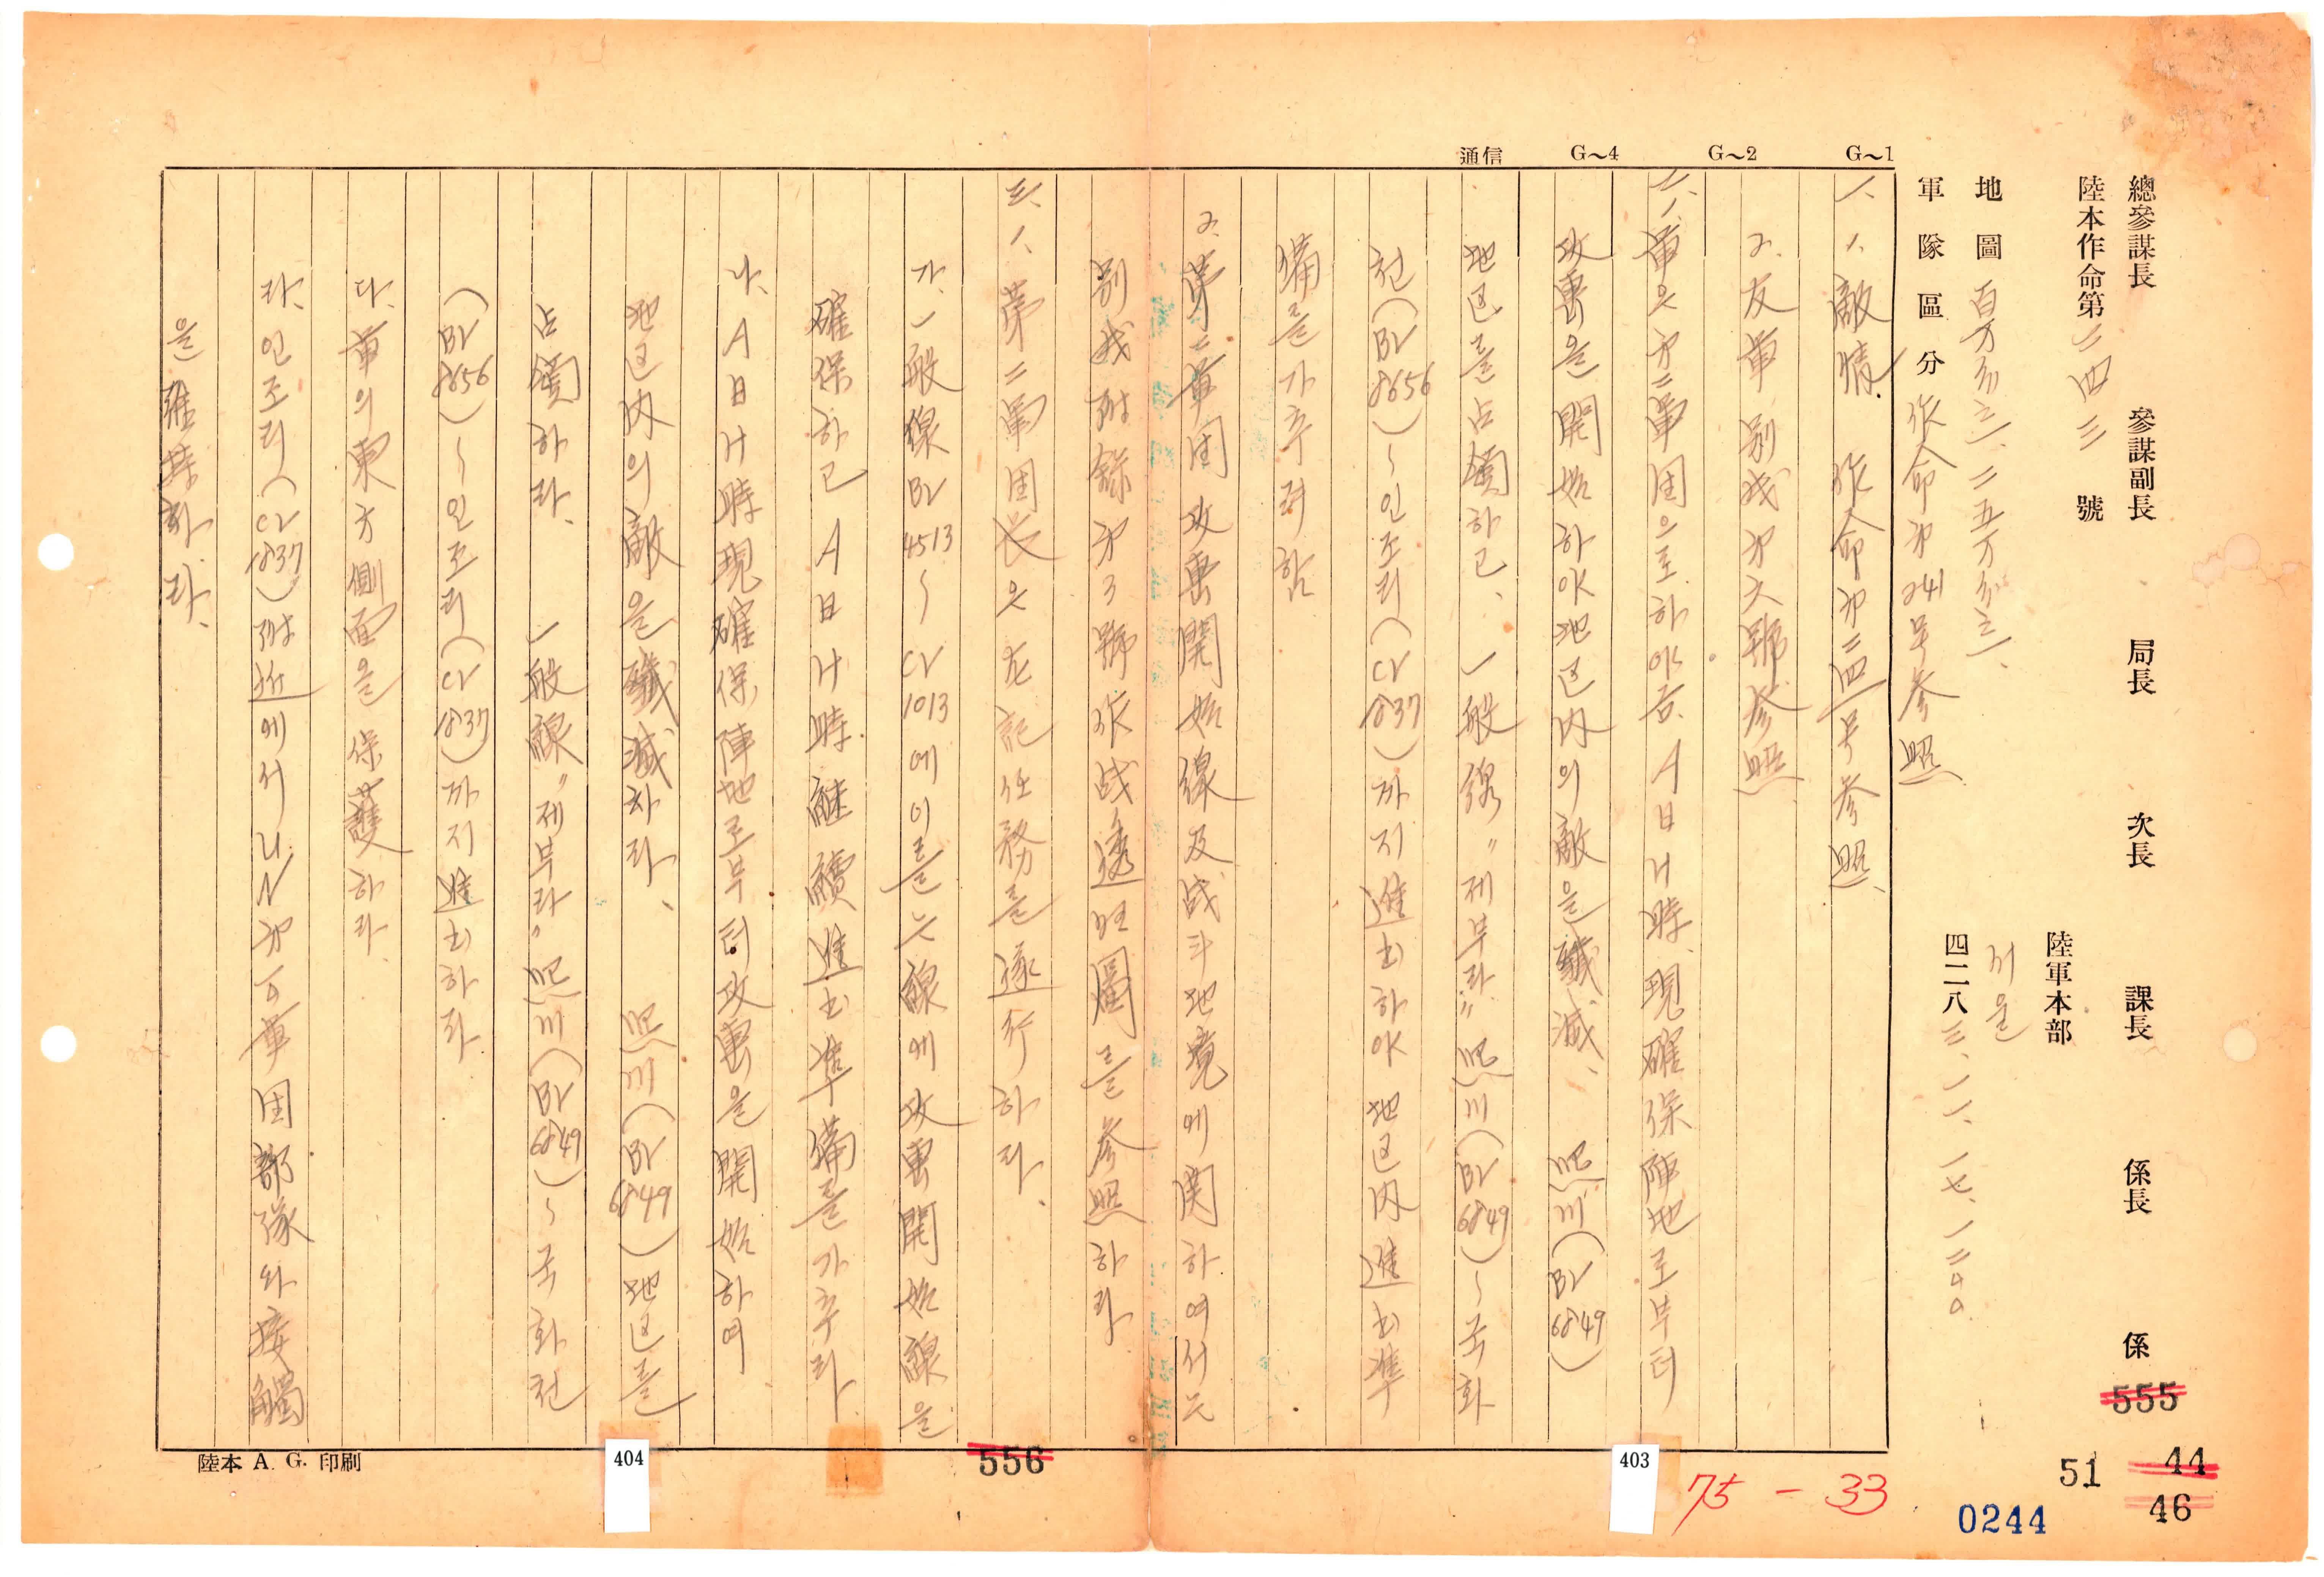 總參謀長 參謀副長 局長 次長 課長 係長 係
陸本作命第二四三號
陸軍本部
地圖 百万分之一、二五万分之一、
서울
軍隊區分 作命第241号参照
四二八三、一一、一七、一二００
G～1
G～2
G～4
通信
一、1、敵情 作命第二四一号参照、
2、友軍 別紙第六號参照、
二、1、軍은 第二軍団으로 하야금 A日H時 現確保陣地로부터
攻擊을 開始하야 地区内의 敵을 殲滅、 熙川(BV6849)
地区를 占領하고、一般線 "제부락" 熙川(BV6849)～국화
천(BV8656)～인조리(CV1837)까지 進出하야 地区内 進出準
備를 가추려함
2、第二軍団 攻擊開始線 及 战斗地境에 関하여서는
別紙附錄第3號作战透明圖를 参照하라
三、1、第二軍団長은 左記任務를 遂行하라、
가、一般線 BV4513～CV1013에 이르는 線에 攻擊開始線을
確保하고 A日H時 継續進出準備를 가추라、
나、A日H時 現確保陣地로부터 攻擊을 開始하여
地区内의 敵을 殲滅하라、 熙川(BV6849)地区를
占領하라、 一般線 "제부락" 熙川(BV6849)～국화천
(BV8656)～인조리(CV1837)까지 進出하라
다、軍의 東方側面을 保護하라、
라、인조리(CV1837)附近에서 UN第10軍団部隊와 接觸
을 維持하라、
陸本 A. G. 印刷
404
556
403
75-33
555
51
44
46
0244